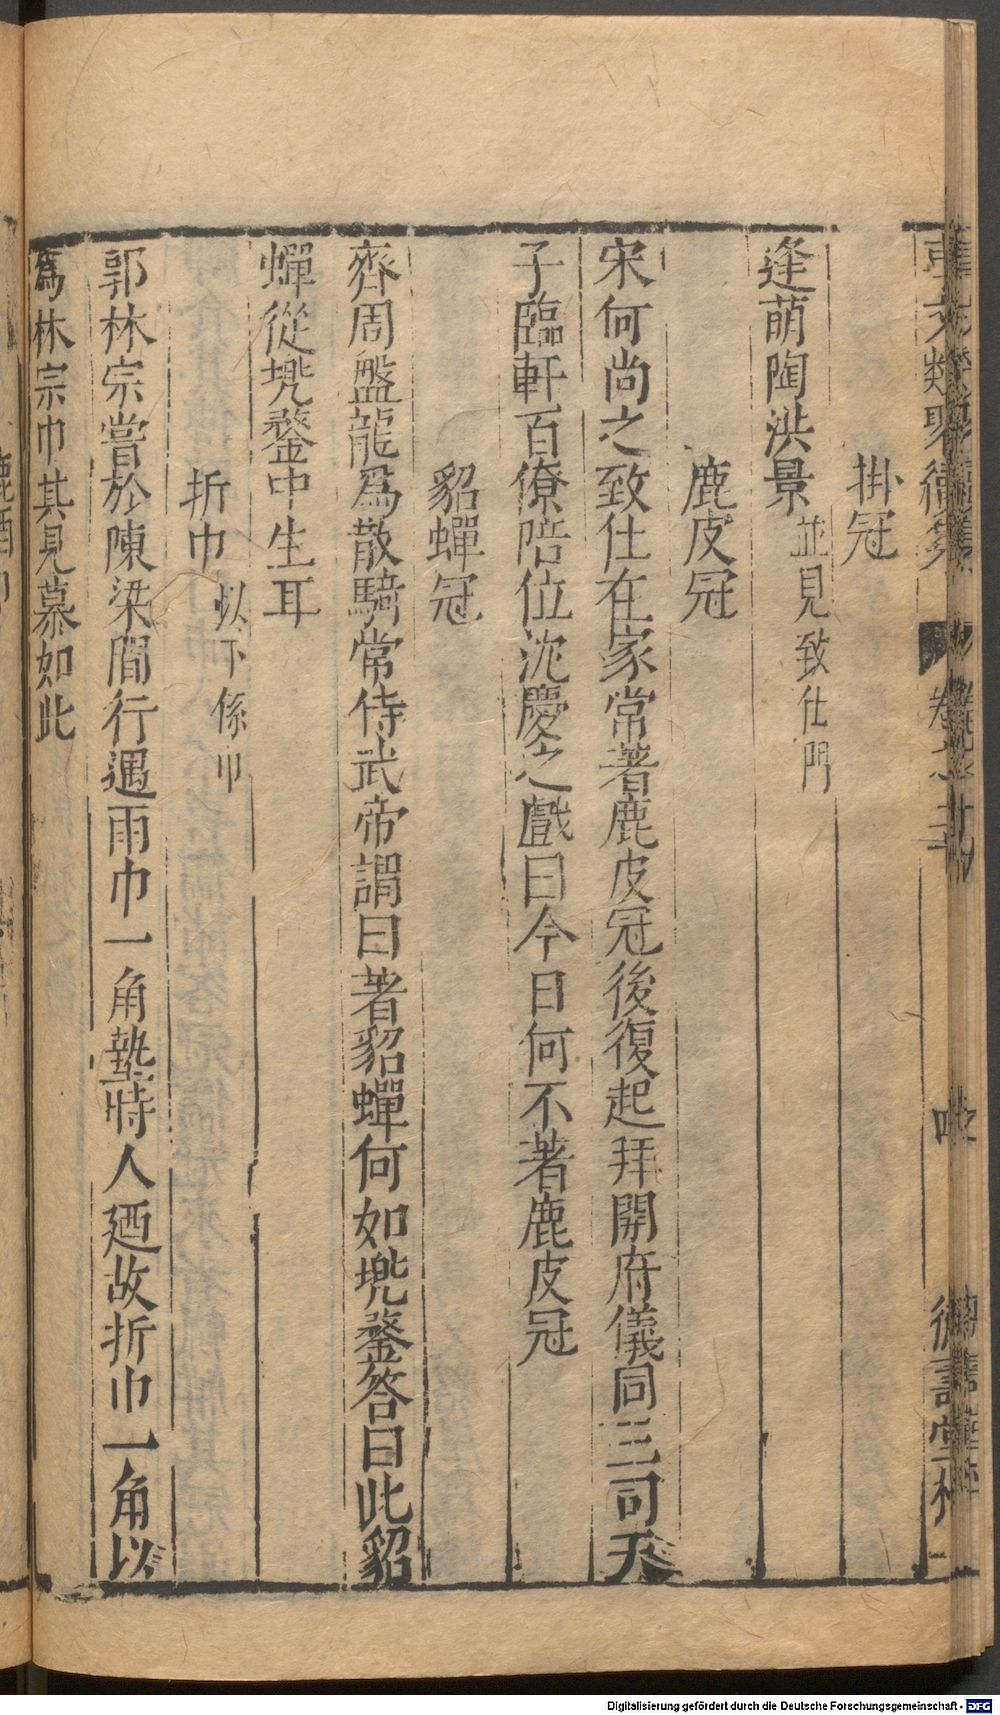 掛冠
逢萌陶洪景並見致仕門
鹿皮冠
宋何尚之致仕在家常著鹿皮冠後復起拜開府儀同三司天
子臨軒百僚陪位沈慶之戲曰今日何不著鹿皮冠
貂蟬冠
齊周盤龍爲散騎常侍武帝謂曰著貂蟬何如兠鍪答曰此貂
蟬從兠鍪中生耳
折巾以下係巾
郭林宗嘗於陳梁間行遇雨巾一角墊時人廼故折巾一角以
爲林宗巾其見慕如此
Digitalisierung gefördert durch die Deutsche Forschungsgemeinschaft - DFG